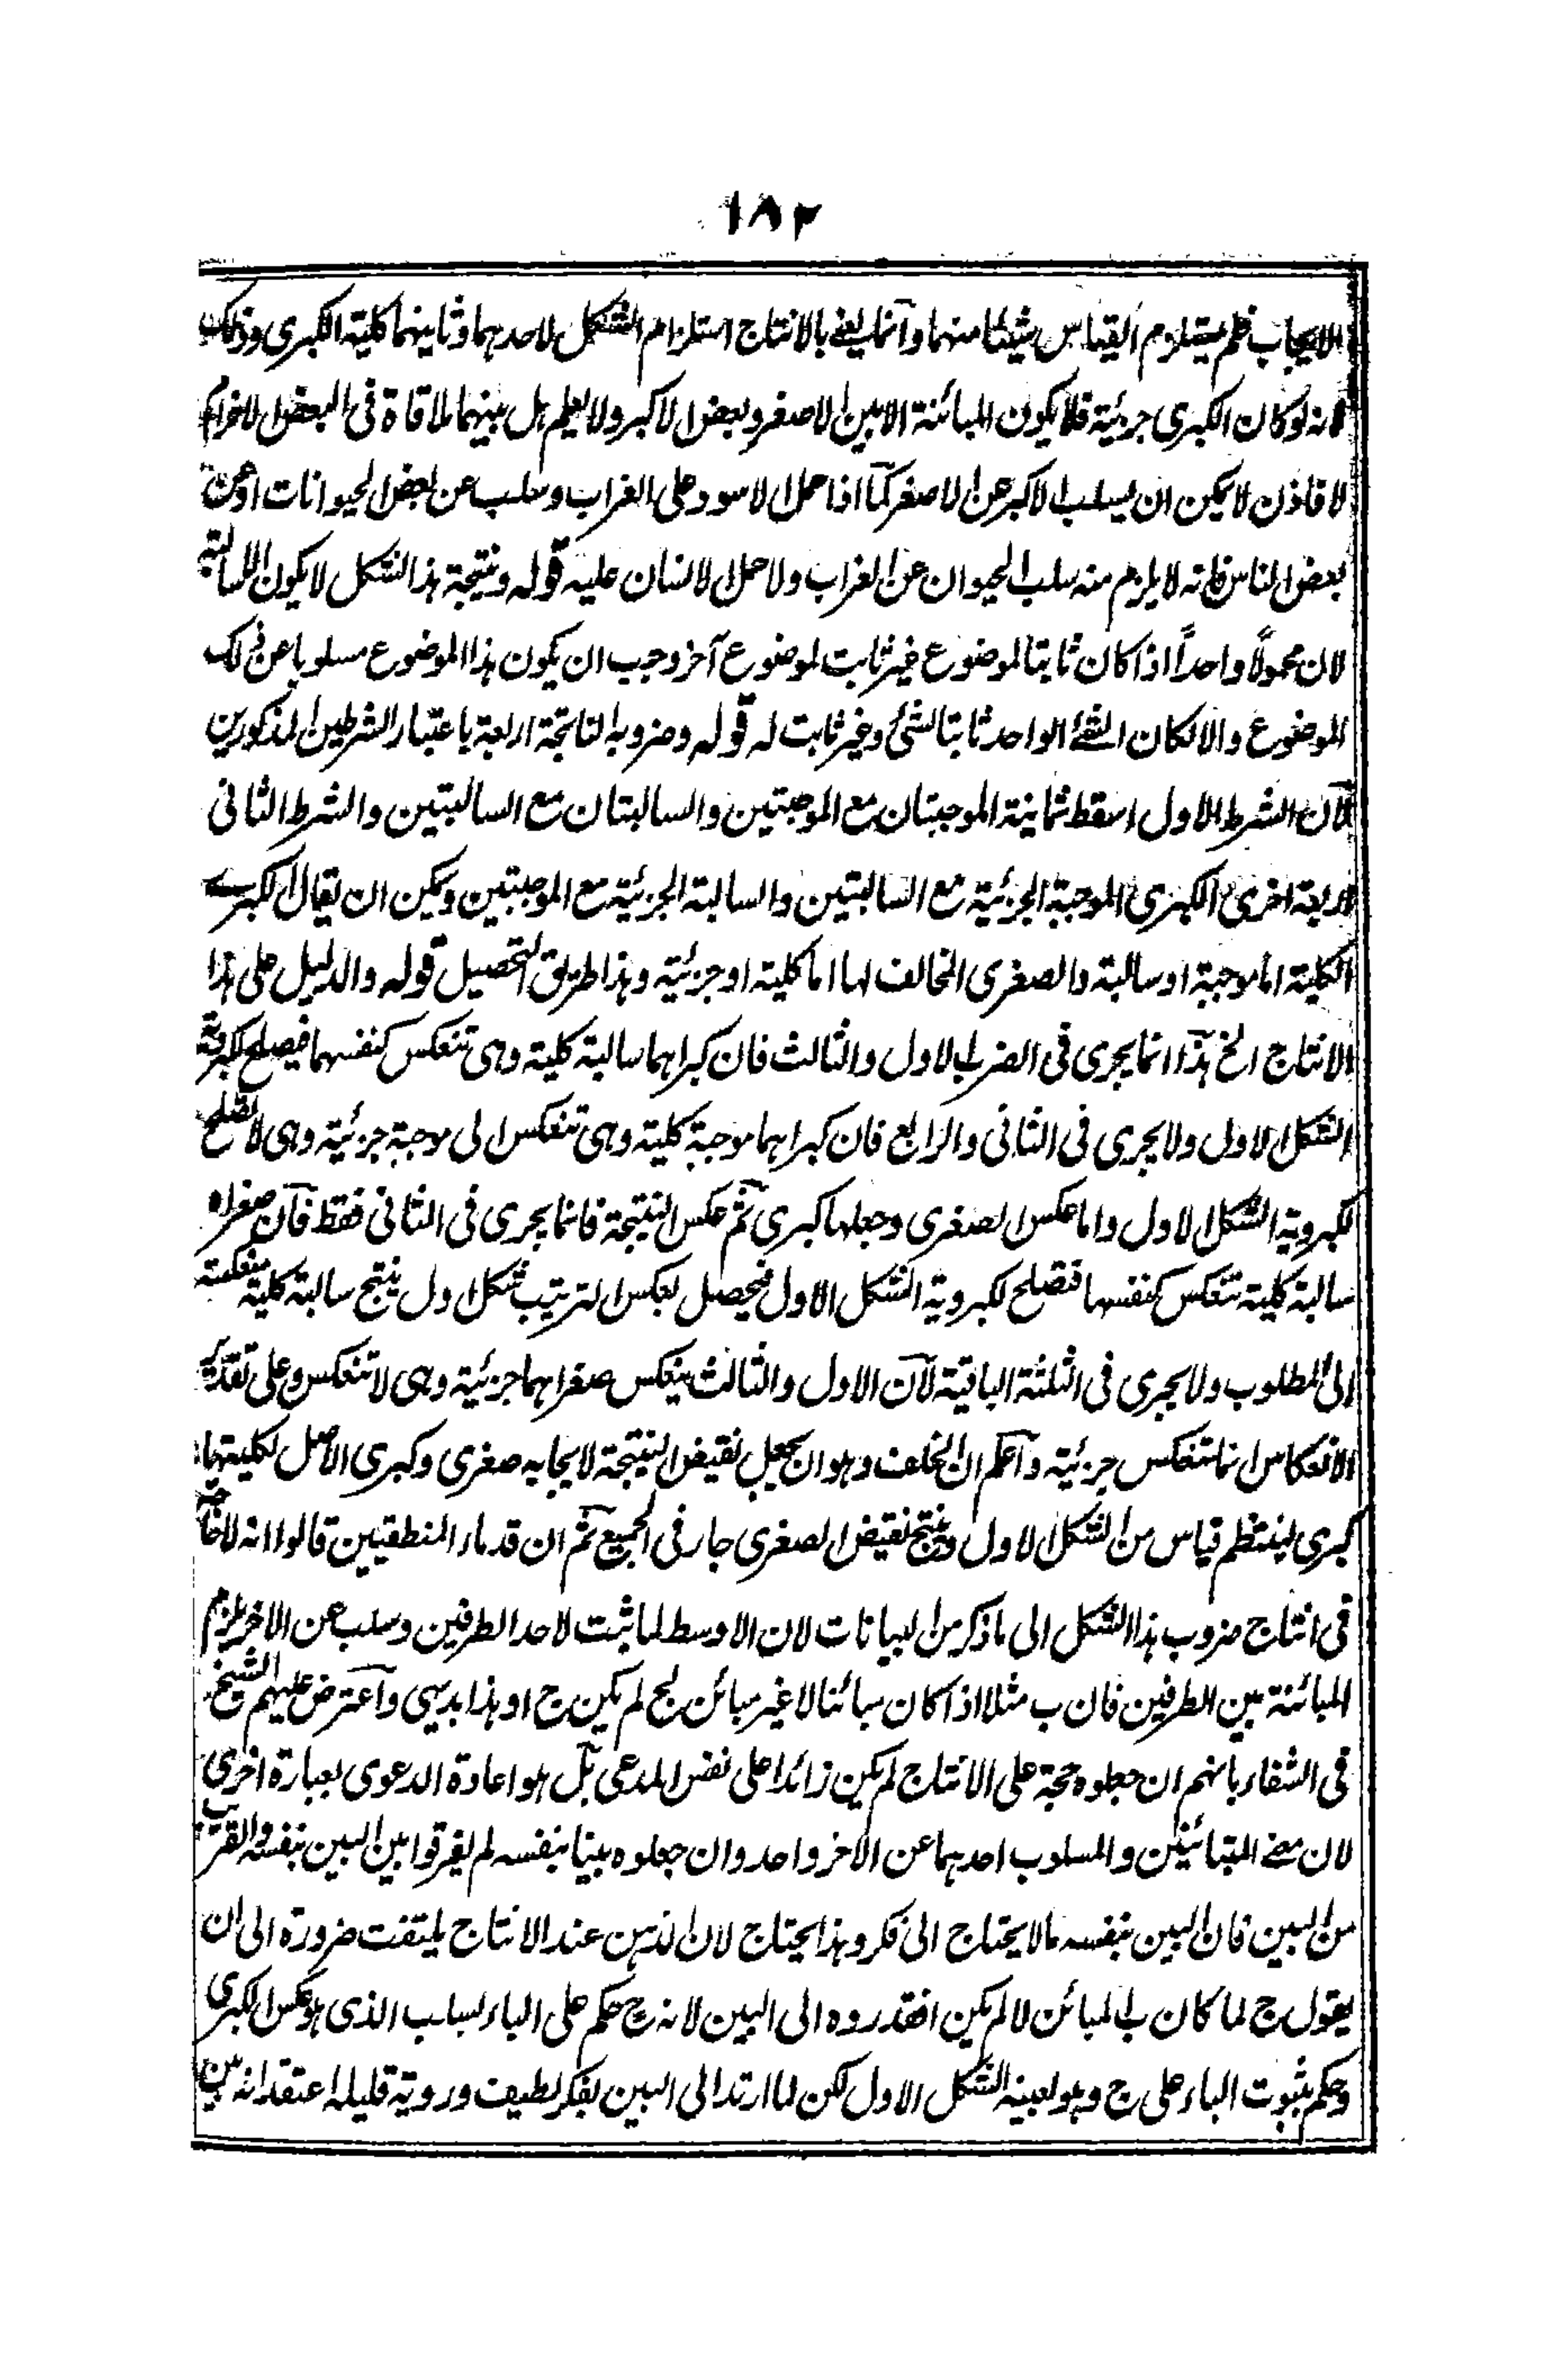 ١٨٢
الايجاب فلم يستلزم القياس شيئا منهما وانما يعنى بالانتاج استلزام الشكل لاحدهما وثانيهما كلية الكبرى وذلك
لانه لو كان الكبرى جزئية فلا يكون المبائنة الا بين الاصغر وبعض الاكبر ولا يعلم هل بينهما ملاقاة فى البعض الاخر ام
لا فاذن لا يمكن ان يسلب الاكبر عن الاصغر كما اذا حمل الاسود على الغراب وسلب عن بعض الحيوانات او عن
بعض الناس فانه لا يلزم منه سلب الحيوان عن الغراب ولا حمل الانسان عليه قوله ونتيجة هذا الشكل لا يكون الا سالبة
لان محمولا واحدا اذا كان ثابتا لموضوع غير ثابت لموضوع آخر وجب ان يكون هذا الموضوع مسلوبا عن ذلك
الموضوع والا لكان الشئ الواحد ثابتا لشئ وغير ثابت له قوله وضروبه الناتجة اربعة باعتبار الشرطين المذكورين
لان الشرط الاول اسقط ثمانية الموجبتان مع الموجبتين والسالبتان مع السالبتين والشرط الثانى
اربعة اخرى الكبرى الموجبة الجزئية مع السالبتين والسالبة الجزئية مع الموجبتين ويمكن ان يقال الكبرى
الكلية اما موجبة او سالبة والصغرى المخالف لها اما كلية او جزئية وهذا طريق التحصيل قوله والدليل على هذا
الانتاج الخ هذا انما يجرى فى الضرب الاول والثالث فان كبراهما سالبة كلية وهى تنعكس كنفسها فيصلح لكبروية
الشكل الاول ولا يجرى فى الثانى والرابع فان كبراهما موجبة كلية وهى تنعكس الى موجبة جزئية وهى لا تصلح
لكبروية الشكل الاول واما عكس الصغرى وجعلها كبرى ثم عكس النتيجة فانما يجرى فى الثانى فقط فان صغراه
سالبة كلية تنعكس كنفسها فتصلح لكبروية الشكل الاول فيحصل بعكس الترتيب شكل اول ينتج سالبة كلية منعكسة
الى المطلوب ولا يجرى فى الثلثة الباقية لان الاول والثالث ينعكس صغراهما جزئية وهى لا تنعكس وعلى تقدير
الانعكاس انما تنعكس جزئية واعلم ان الخلف وهو ان يجعل نقيض النتيجة لايجابه صغرى وكبرى الاصل لكليتها
كبرى لينتظم قياس من الشكل الاول وينتج نقيض الصغرى جار فى الجميع ثم ان قدماء المنطقيين قالوا انه لا حاجة
فى انتاج ضروب هذا الشكل الى ما ذكر من البيانات لان الاوسط لما ثبت لاحد الطرفين وسلب عن الاخر يلزم
المبائنة بين الطرفين فان ب مثلا اذا كان مبائنا لا غير مبائن لج لم يكن ج ا وهذا بديهى واعترض عليهم الشيخ
فى الشفاء بانهم ان جعلوه حجة على الانتاج لم يكن زائدا على نفس المدعى بل هو اعادة الدعوى بعبارة اخرى
لان معنى المتبائنين والمسلوب احدهما عن الاخر واحد وان جعلوه بينا بنفسه لم يفرقوا بين البين بنفسه والقريب
من البين فان البين بنفسه ما لا يحتاج الى فكر وهذا يحتاج لان الذهن عند الانتاج يلتفت ضرورة الى ان
يقول ج لما كان ب المبائن لا لم يكن ا فقد روه الى البين لانه ح حكم على الباء بسلب الذى هو عكس الكبرى
وحكم بثبوت الباء على ج وهو بعينه الشكل الاول لكن لما ارتد الى البين بفكر لطيف وروية قليلة اعتقد انه بين